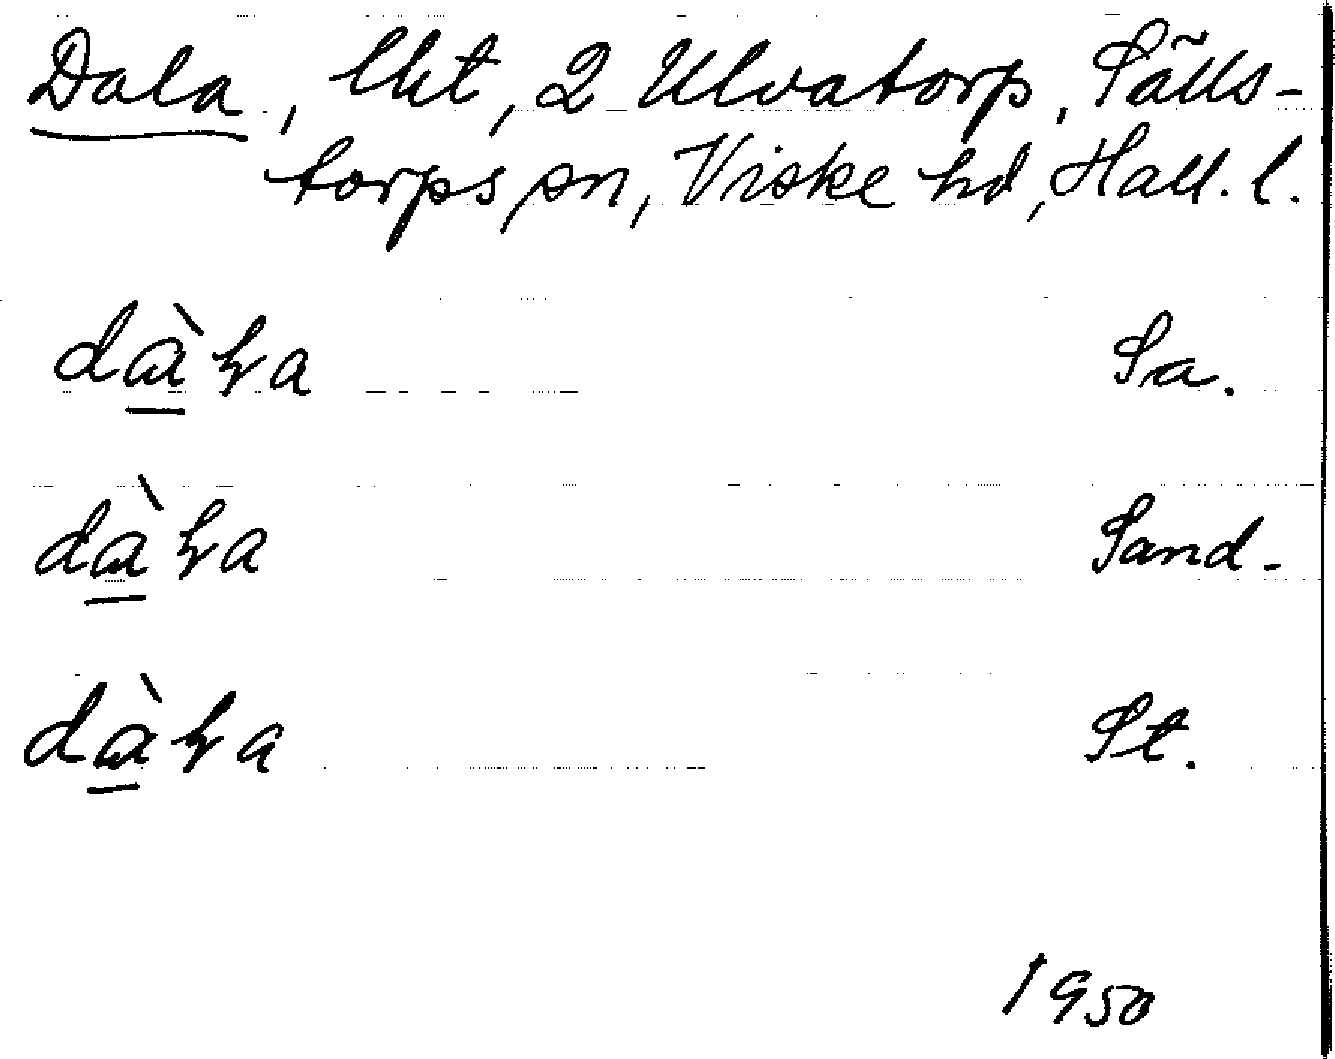 Dala, lht, 2 Ulvatorp, Sälls-
torps sn, Viske hd, Hall. l.
dàɽa Sa.
dàɽa Sand.
dàɽa St.
1950